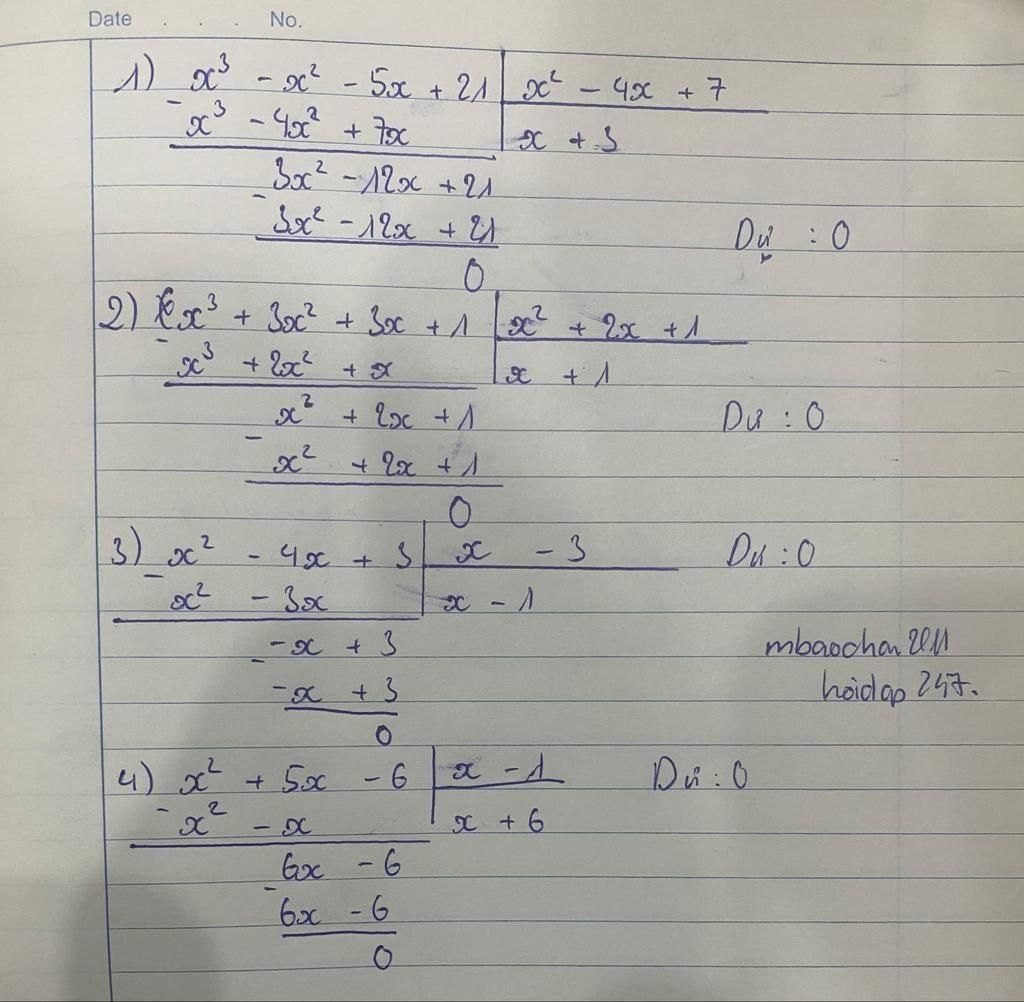 Date . . . No.
1) x³ - x² - 5x + 21 | x² - 4x + 7
- x³ - 4x² + 7x | x + 3
3x² - 12x + 21
- 3x² - 12x + 21 Dư : 0
0
2) x³ + 3x² + 3x + 1 | x² + 2x + 1
- x³ + 2x² + x | x + 1
x² + 2x + 1 Dư : 0
- x² + 2x + 1
0
3) x² - 4x + 3 | x - 3 Dư : 0
- x² - 3x | x - 1
-x + 3 mbaochan2011
- -x + 3 hoidap247.
0
4) x² + 5x - 6 | x - 1 Dư : 0
- x² - x | x + 6
6x - 6
- 6x - 6
0